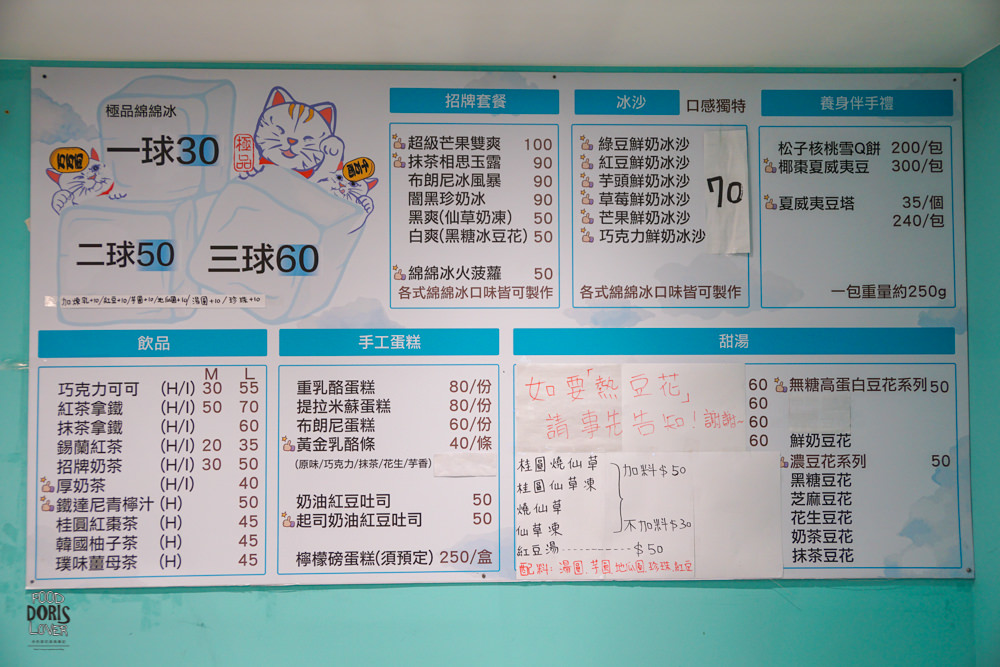 極品綿綿冰
一球30
極品
二球50
三球60
加煉乳+10/紅豆+10/芋圓+10/地瓜圓+10/湯圓+10/珍珠+10
招牌套餐
超級芒果雙爽 100
抹茶相思玉露 90
布朗尼冰風暴 90
闇黑珍奶冰 90
黑爽(仙草奶凍) 50
白爽(黑糖冰豆花) 50
綿綿冰火菠蘿 50
各式綿綿冰口味皆可製作
冰沙
口感獨特
綠豆鮮奶冰沙
紅豆鮮奶冰沙
芋頭鮮奶冰沙
草莓鮮奶冰沙
芒果鮮奶冰沙
巧克力鮮奶冰沙
70
各式綿綿冰口味皆可製作
養身伴手禮
松子核桃雪Q餅 200/包
椰棗夏威夷豆 300/包
夏威夷豆塔 35/個
240/包
一包重量約250g
飲品
M L
巧克力可可 (H/I) 30 55
紅茶拿鐵 (H/I) 50 70
抹茶拿鐵 (H/I) 60
錫蘭紅茶 (H/I) 20 35
招牌奶茶 (H/I) 30 50
厚奶茶 (H/I) 40
鐵達尼青檸汁 (H) 50
桂圓紅棗茶 (H) 45
韓國柚子茶 (H) 45
璞味薑母茶 (H) 45
手工蛋糕
重乳酪蛋糕 80/份
提拉米蘇蛋糕 80/份
布朗尼蛋糕 60/份
黃金乳酪條 40/條
(原味/巧克力/抹茶/花生/芋香)
奶油紅豆吐司 50
起司奶油紅豆吐司 50
檸檬磅蛋糕(須預定) 250/盒
甜湯
如要「熱豆花」
請事先告知!謝謝~
60
60
60
60
桂圓燒仙草
桂圓仙草凍
燒仙草
仙草凍
加料$50
不加料$30
紅豆湯----------$50
配料:湯圓.芋圓.地瓜圓.珍珠.紅豆
無糖高蛋白豆花系列 50
鮮奶豆花
濃豆花系列 50
黑糖豆花
芝麻豆花
花生豆花
奶茶豆花
抹茶豆花
FOOD
DORIS
LOVER